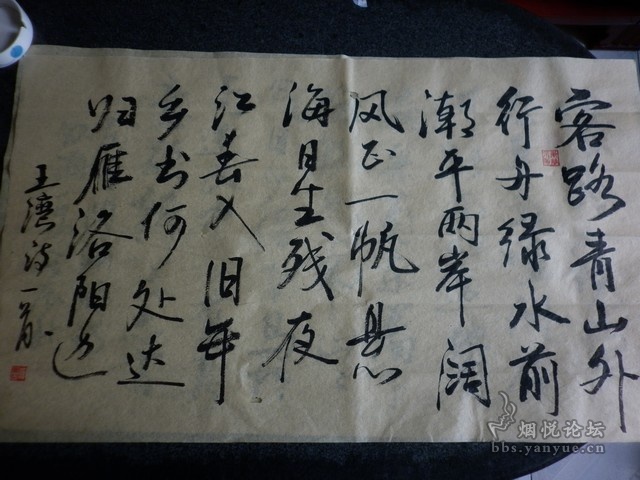 客路青山外
行舟绿水前
潮平两岸阔
风正一帆悬
海日生残夜
江春入旧年
乡书何处达
归雁洛阳边
王湾诗一首
烟悦论坛
bbs.yanyue.cn